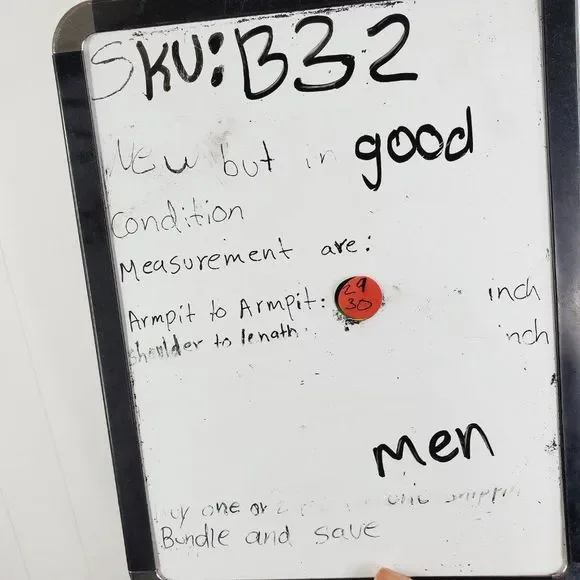 SKU: B32
New but in good
Condition
Measurement are:
Armpit to Armpit: 29 inch
30
shoulder to lenath: inch
men
one or
Bundle and save